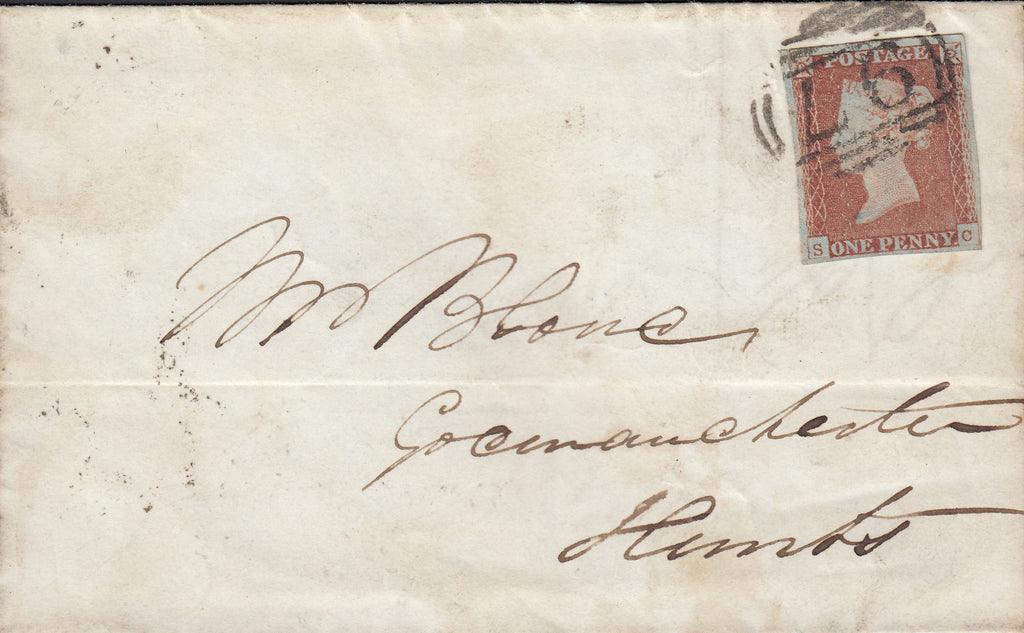 POSTAGE
L 6
S ONE PENNY C
Mr
Godmanchester
Hunts